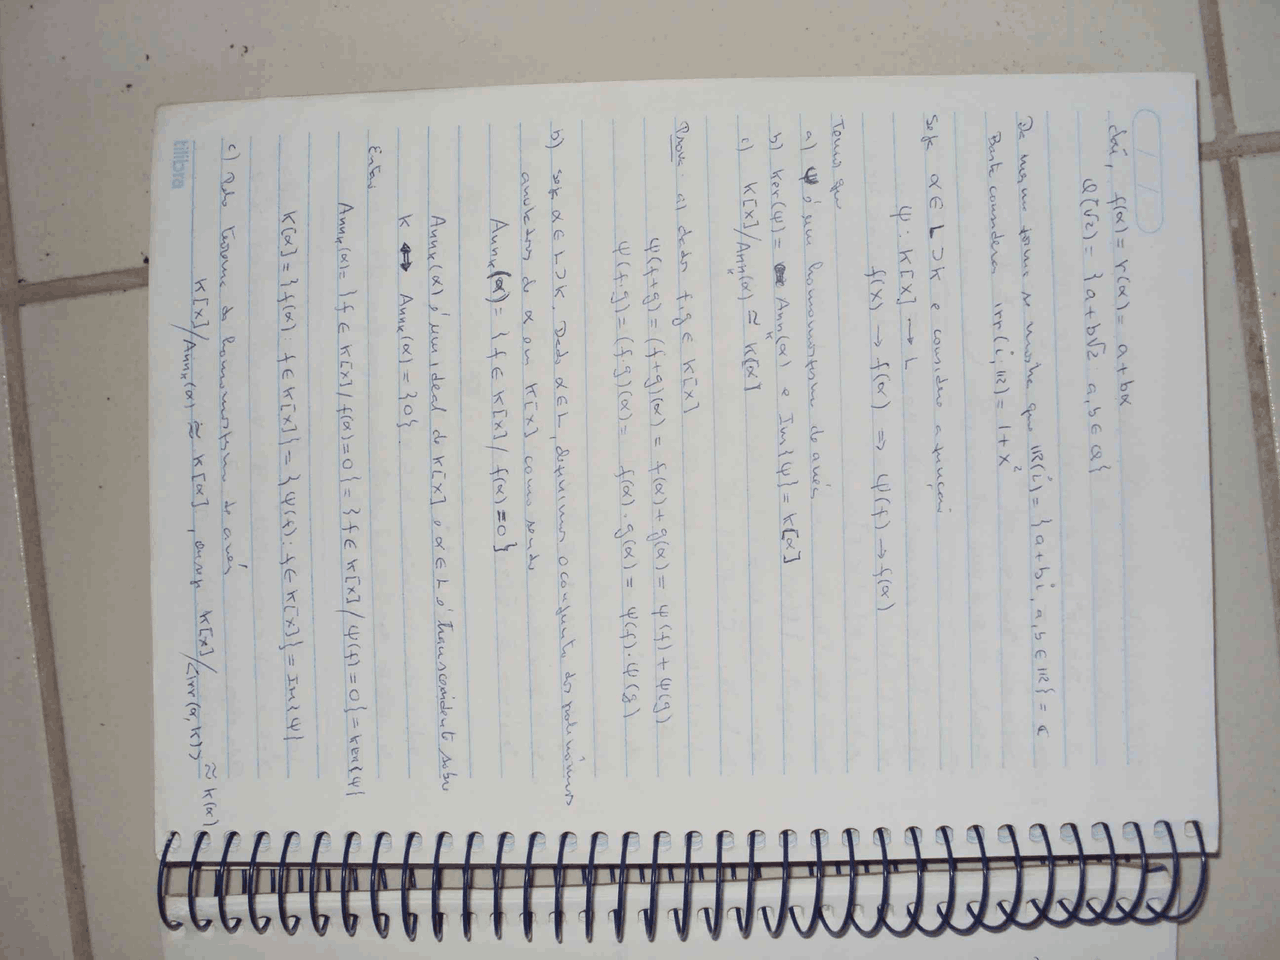 daí, f(α) = r(α) = a + bα
Q(√2) = {a + b√2 : a, b ∈ Q}
De mesma forma se mostra que IR(i) = {a + bi, a, b ∈ IR} = C
Basta considerar irr(i, IR) = 1 + x²
Seja α ∈ L ⊃ K e considere a função
ψ : K[x] → L
f(x) → f(α) ⇒ ψ(f) → f(α)
Temos que
a) ψ é um homomorfismo de anéis
b) Ker(ψ) = Ann_K(α) e Im{ψ} = K[α]
c) K[x]/Ann_K(α) ≃ K[α]
Prova: a) dados f, g ∈ K[x]
ψ(f+g) = (f+g)(α) = f(α) + g(α) = ψ(f) + ψ(g)
ψ(f·g) = (f·g)(α) = f(α) · g(α) = ψ(f) · ψ(g)
b) seja α ∈ L ⊃ K. Dado α ∈ L, definimos o conjunto dos polinômios
anuladores de α em K[x] como sendo
Ann_K(α) = {f ∈ K[x] / f(α) = 0}
Ann_K(α) é um ideal de K[x] e α ∈ L é transcendente sobre
K ⇔ Ann_K(α) = {0}.
Então
Ann_K(α) = {f ∈ K[x] / f(α) = 0} = {f ∈ K[x] / ψ(f) = 0} = Ker{ψ}
K[α] = {f(α) : f ∈ K[x]} = {ψ(f) : f ∈ K[x]} = Im{ψ}
c) Pelo teorema do homomorfismo de anéis
K[x]/Ann_K(α) ≃ K[α], K[x]/<irr(α, K)> ≃ K(α)
tilibra